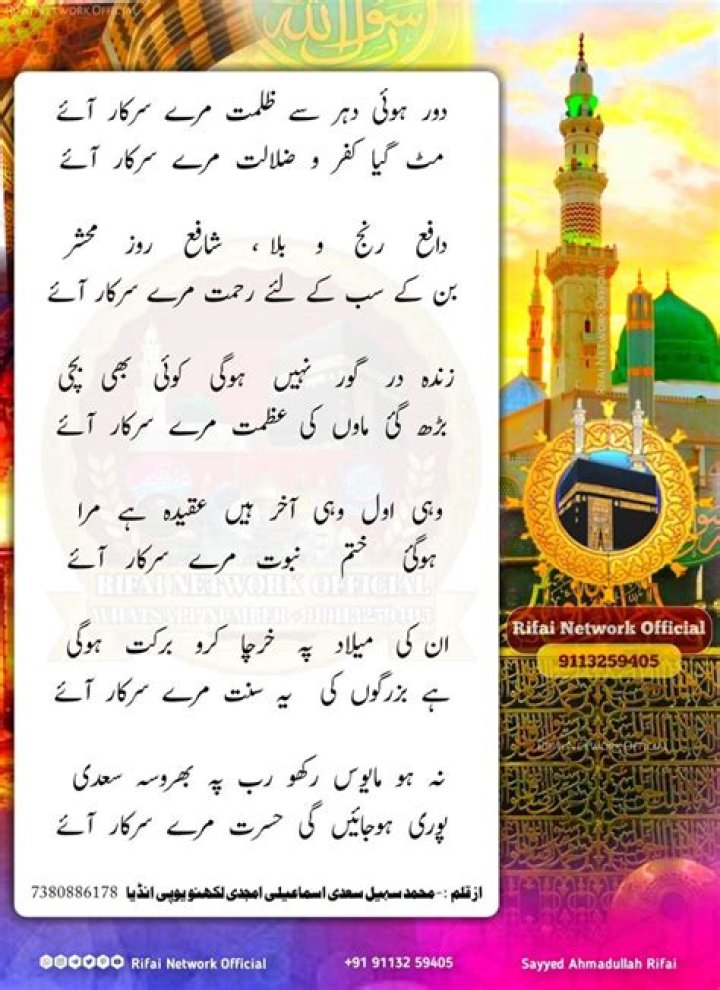 RIFAI NETWORK OFFICIAL
رسول الله
دور ہوئی دہر سے ظلمت مرے سرکار آئے
مٹ گیا کفر و ضلالت مرے سرکار آئے
دافع رنج و بلا ، شافع روز محشر
بن کے سب کے لئے رحمت مرے سرکار آئے
زندہ در گور نہیں ہوگی کوئی بھی بچی
بڑھ گئ ماوں کی عظمت مرے سرکار آئے
وہی اول وہی آخر ہیں عقیدہ ہے مرا
ہوگئ ختم نبوت مرے سرکار آئے
RIFAI NETWORK OFFICIAL
WHATSAPP NUMBER
ان کی میلاد پہ خرچا کرو برکت ہوگی
ہے بزرگوں کی یہ سنت مرے سرکار آئے
نہ ہو مایوس رکھو رب پہ بھروسہ سعدی
پوری ہوجائیں گی حسرت مرے سرکار آئے
از قلم :- محمد سہیل سعدی اسماعیلی امجدی لکھنو یوپی انڈیا 7380886178
Rifai Network Official
9113259405
RIFAI NETWORK OFFICIAL
Rifai Network Official
+91 91132 59405
Sayyed Ahmadullah Rifai